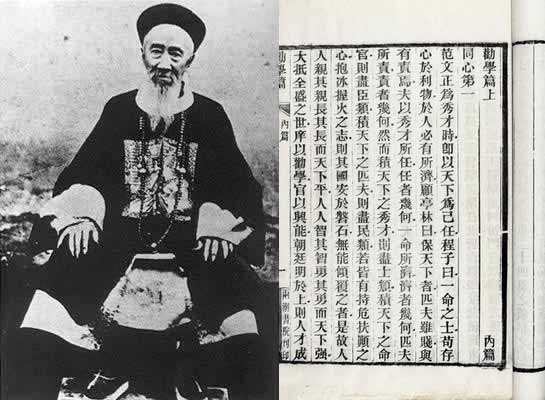 勸學篇上 內篇
同心第一
范文正為秀才時即以天下為己任程子曰一命之士苟存
心於利物於人必有所濟顧亭林曰保天下者匹夫雖賤與
有責焉夫以秀才所任任者幾何一命所濟濟者幾何匹夫
所責責者幾何然而積天下之秀才則盡士類積天下之命
官則盡臣類積天下之匹夫則盡民類若皆有持危扶顚之
心抱冰握火之志則其國安於磐石無能傾覆之者是故人
人親其親長其長而天下平人人智其智勇其勇而天下强
大抵全盛之世庠以勸學官以興能朝廷明於上則人才成
勸學篇 內篇 一 兩湖書院刊印